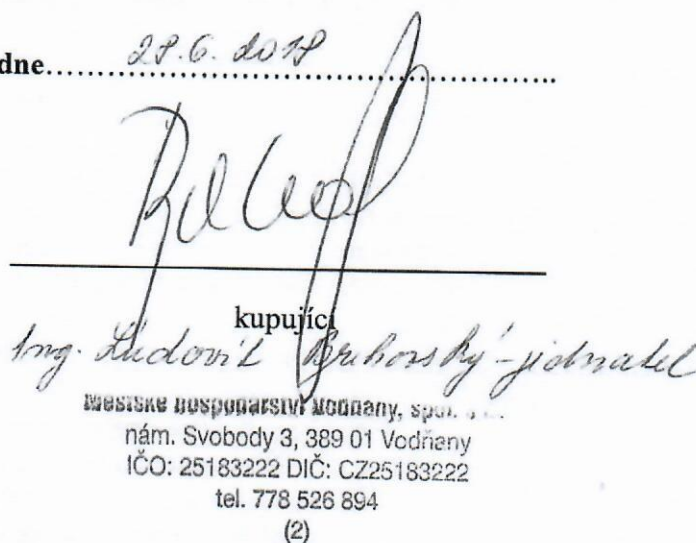 dne 28.6.2018
kupující
Ing. Ludovít - jednatel
Městské hospodářství Vodňany, spol.
nám. Svobody 3, 389 01 Vodňany
IČO: 25183222 DIČ: CZ25183222
tel. 778 526 894
(2)